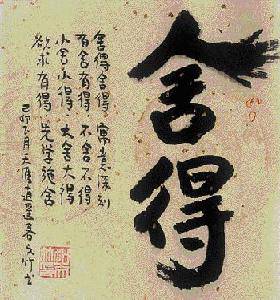 舍得
舍得舍得寓意深刻
有舍有得不舍不得
小舍小得大舍大得
欲求有得先学施舍